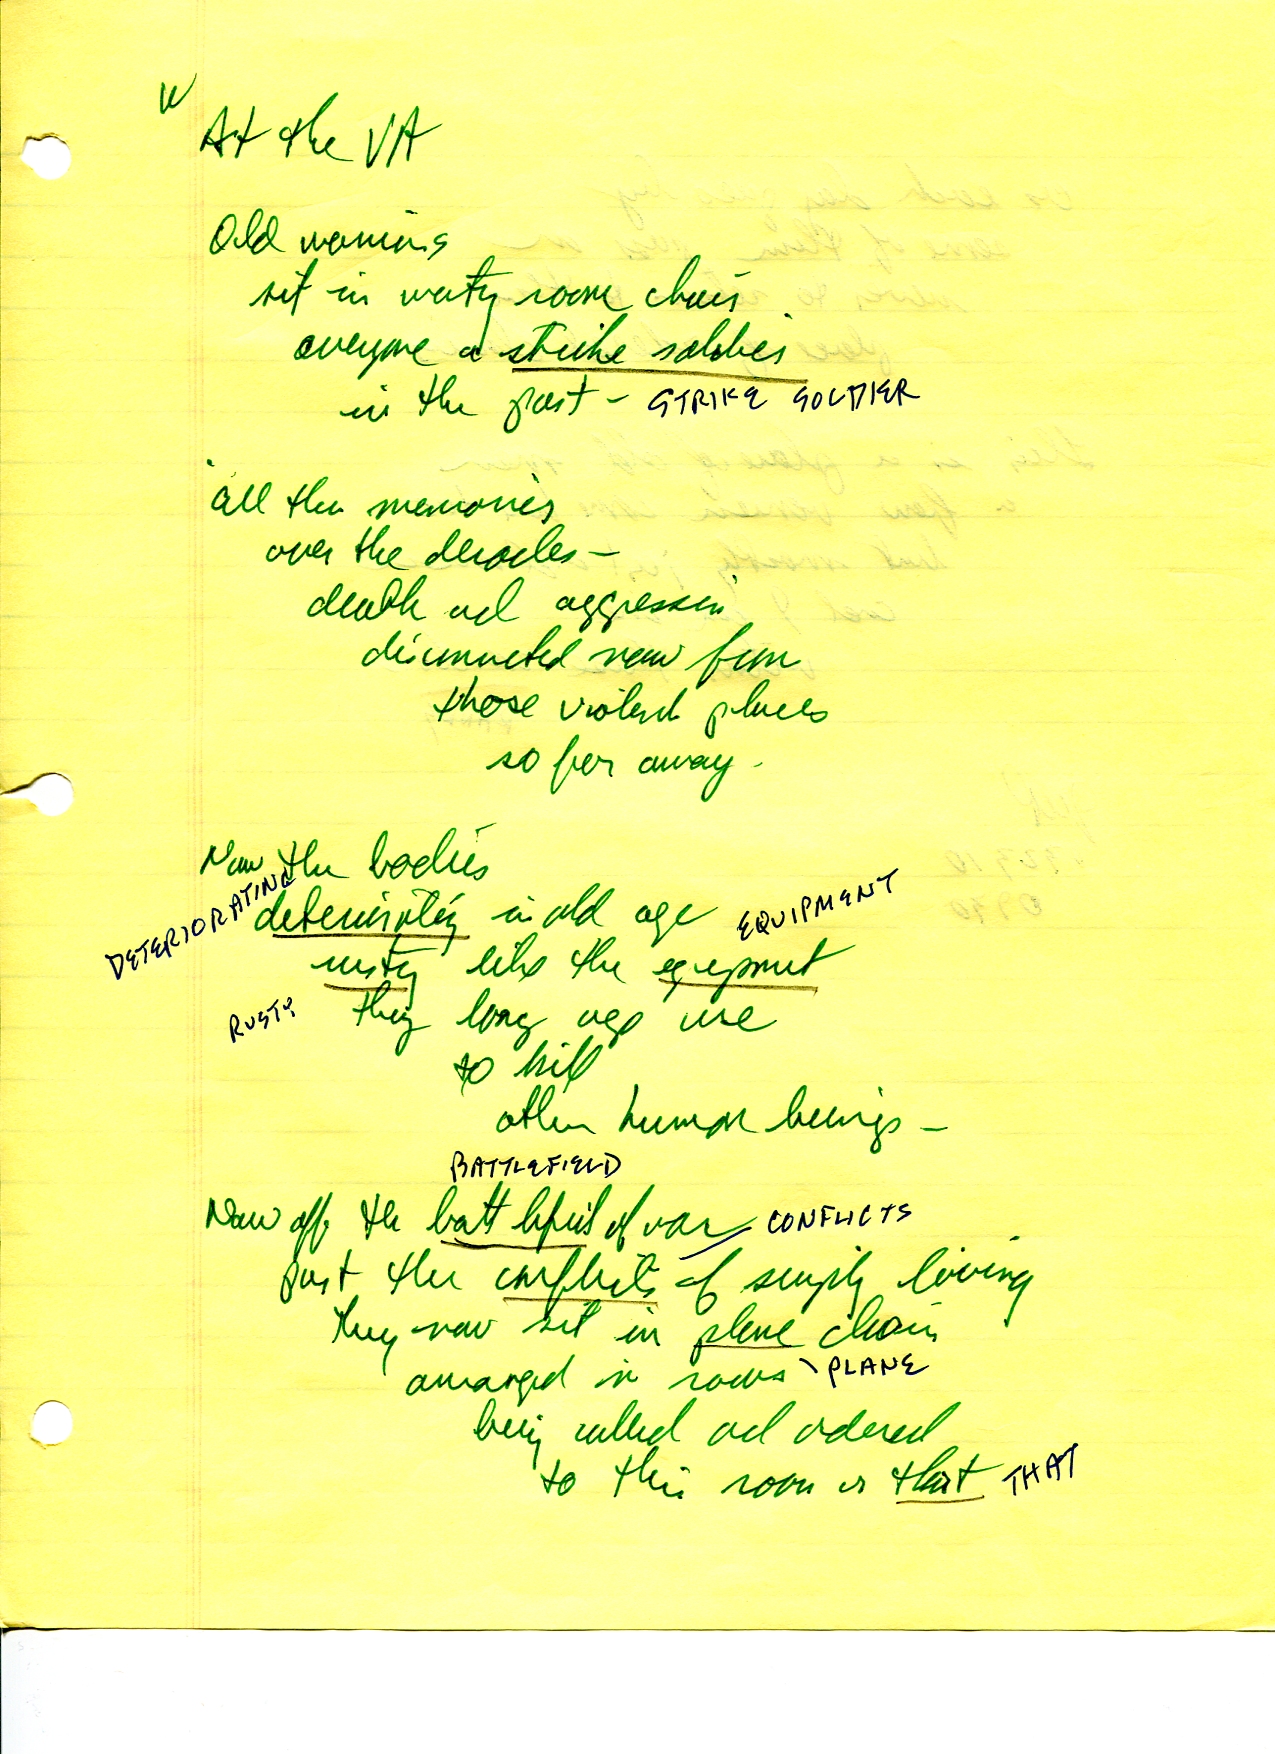 W
At the VA
Old warriors
sit in waiting room chairs
everyone a strike soldier
in the past – STRIKE SOLDIER
all the memories
over the decades –
death and aggression
disconnected now from
those violent places
so far away.
Now the bodies
DETERIORATING
deteriorating in old age EQUIPMENT
rusty like the equipment
RUSTY they long ago use
to kill
other human beings –
BATTLEFIELD
Now off the battlefield of war CONFLICTS
past the conflicts of simply living
they now sit in plane chairs
arranged in rows PLANE
being called and ordered
to this room or that THAT